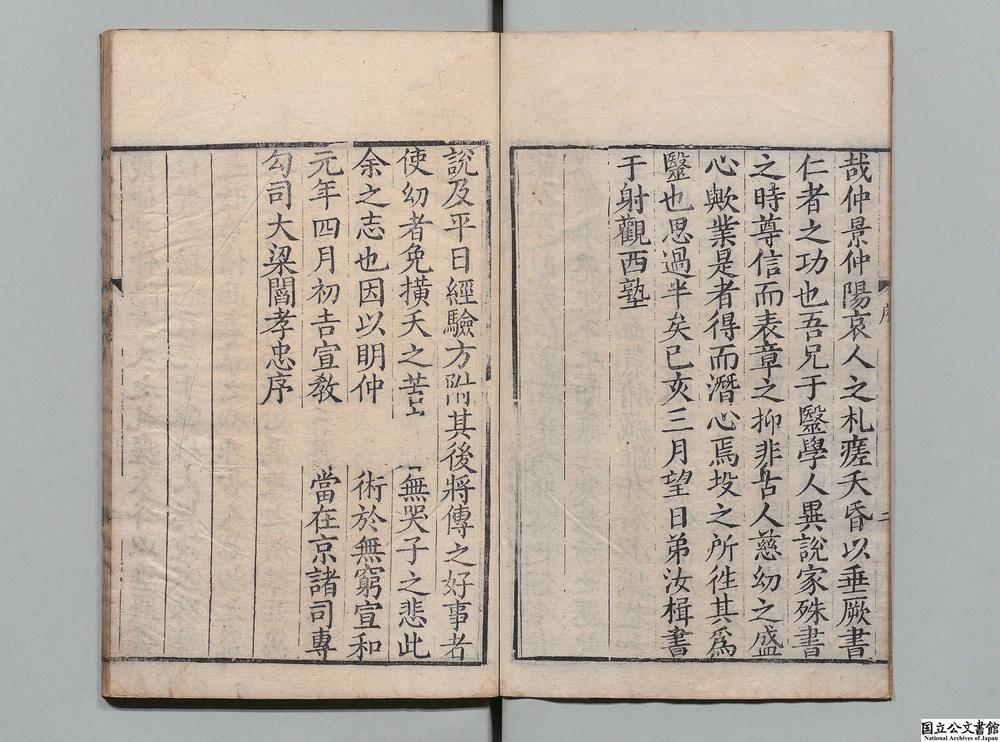 哉仲景仲陽哀人之札瘥夭昏以垂厥書
仁者之功也吾兄于醫學人異說家殊書
之時尊信而表章之抑非古人慈幼之盛
心歟業是者得而潛心焉投之所徃其為
毉也思過半矣己亥三月望日弟汝楫書
于射觀西塾
序
二
說及平日經驗方附其後將傳之好事者
使幼者免横夭之苦
無哭子之悲此
余之志也因以明仲
術於無窮宣和
元年四月初吉宣教
當在京諸司專
勾司大梁閻孝忠序
国立公文書館
National Archives of Japan